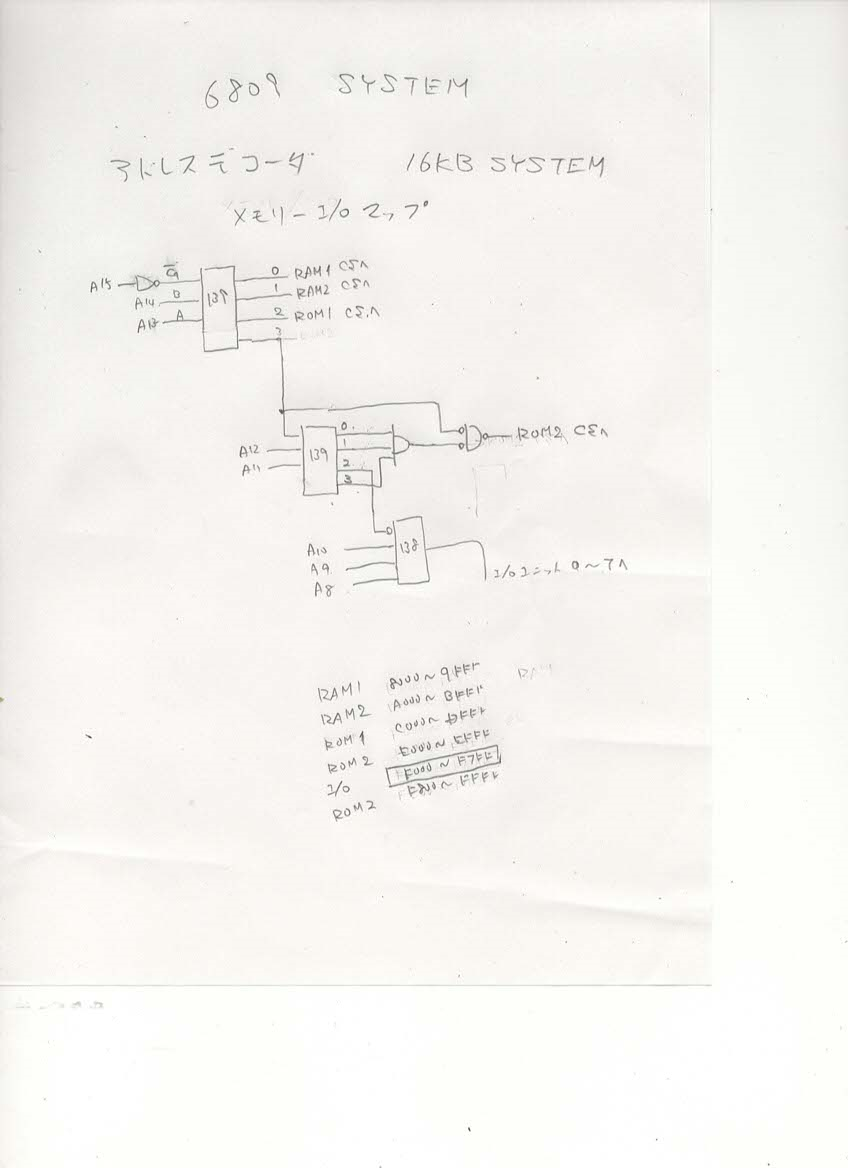 6809 SYSTEM
アドレスデコーダ 16KB SYSTEM
メモリーI/Oマップ
A15 G̅ 0 RAM1 CEへ
A14 B 139 1 RAM2 CEへ
A13 A 2 ROM1 CEへ
3
0 ROM2 CEへ
A12 139 1
A11 2
3
A10 138
A9 I/Oユニット0~7へ
A8
RAM1 8000~9FFF
RAM2 A000~BFFF
ROM1 C000~DFFF
ROM2 E000~EFFF
I/O F000~F7FF
ROM2 F800~FFFF